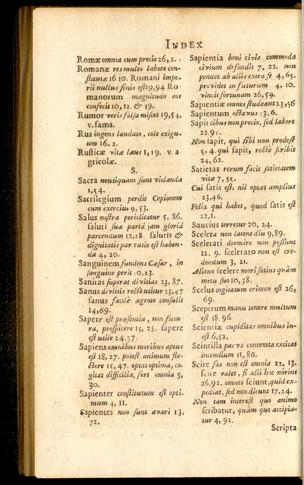 INDEX
Romæ omnia cum precio 26, 2.
Romanæ res multo labore con-
stantia 16 10. Romani impe-
rii nullus finis est 19, 94 Ro-
manorum magnitudo eos
confecit 10, 12. & 19.
Rumor veris falsa miscet 19, 54,
v. fama.
Rus ingens laudato, cole exigu-
um 16. 2.
Rusticæ vitæ laus 1, 19. v. a
gricolæ.
S.
Sacra neutiquam sunt violanda
1, 54.
Sacrilegium perdit Copionem
cum exercitu 9, 53.
Salus nostra periclitatur 5, 86.
saluti suæ partâ jam gloriâ
parcendum 12, 18. salutis &
dignitatis par ratio est haben-
da 4, 20.
Sanguinem fundens Cæsar, in
sanguine perit 0.13.
Sanitas superat divitias 23, 87.
Sanus divitiis rectè utitur 23, 47
sanus facilè ægroto consulit
14, 69.
Sapere est præsentia, non futu-
ra, prospicere 15, 25. sapere
est utile 24, 37.
Sapiens omnibus moribus aptus
est 18, 27. potest animum fle-
ctere 15, 47. optat optima, co-
gitat difficilia, fert omnia 5,
30.
Sapienter constitutum est opti-
mum 4, 11.
Sapientes non sunt avari 13,
72.
Sapientia beni civis commoda
civium defendit 7, 22. non
pendet ab aliis extra se 4, 65.
provides in futurum 4, 10.
vincit fortunam 26, 59.
Sapientiæ omnes studeant 23, 56
Sapientum octavus 13, 6.
Sapit cibus non precio, sed labore
22 91.
Non sapit, qui sibi non prodest
5, 4. qui sapit, rectè scribit
24, 62.
Satietas rerum facit satietatem
vitæ 7, 55.
Cui satis est, nil optat amplius
13, 46.
Felix qui habet, quod satis est
12, 1.
Saucius terretur 20, 24.
Scelera non latent diu 9, 89.
Scelerati dormire non possunt
12, 9. scelerato non est cre-
dendum 3, 21.
Alieno scelere mori satius quàm
metu suo 10, 38.
Scelus originum crimen est 26,
69.
Sceprum manu tenere multum
est 18, 96.
Scientiæ cupiditas omnibus in-
est 6, 52.
Scintilla parva contemta excitat
incendium 11, 86.
Scire fas non est omnia 22, 13.
scire valet, si alii hoc norint
26, 92. omnes sciunt, quid ex-
pediat, sed non dicunt 17, 24.
Non tam interest quo animo
scribatur, quàm quo accipia-
tur 4, 92.
Scripta